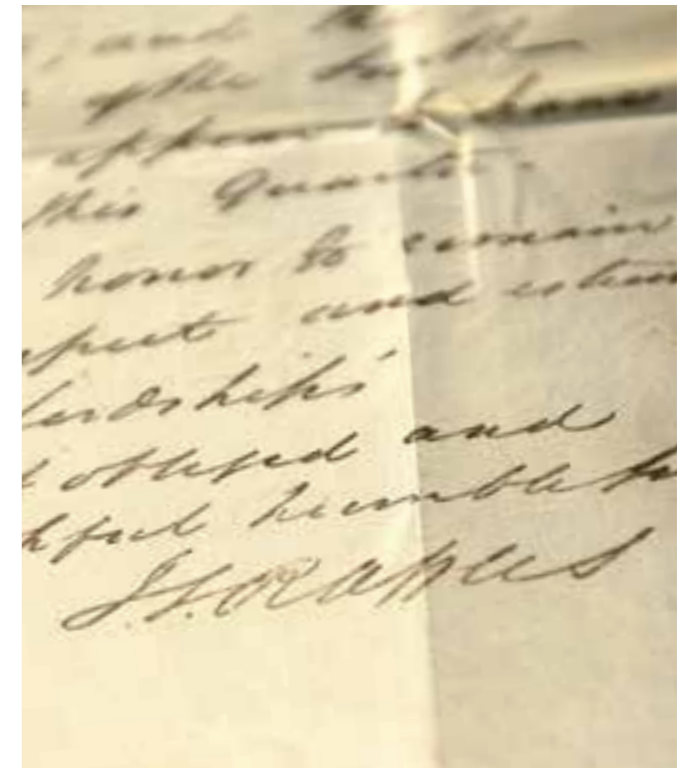 , and
of the
appear
this Quarter.
honor to remain
spect and esteem
Lordships'
t obliged and
hful humble
T.S. Raffles